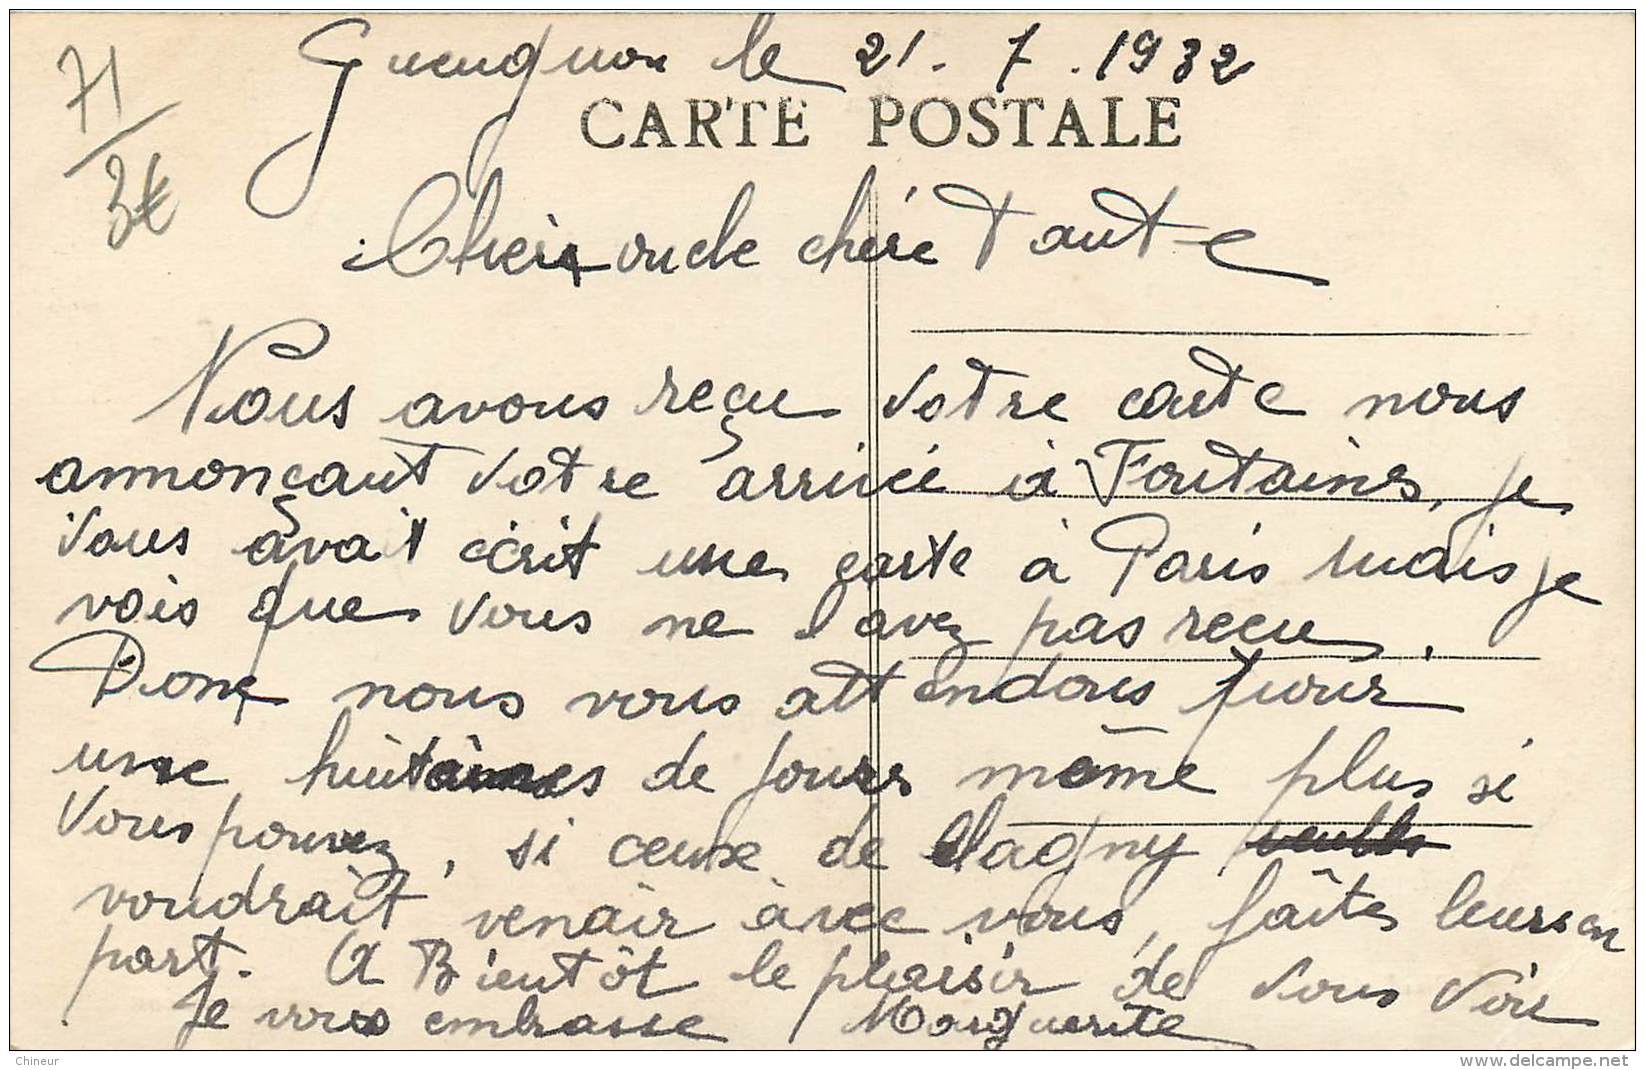 71
3€
Gueugnon le 21.7.1932
CARTE POSTALE
Cher oncle chère Tante
Nous avons reçu votre carte nous
annonçant votre arrivée à Fontaines, je
vous avait écrit une carte à Paris mais je
vois que vous ne l avez pas recu.
Donc nous vous attendons pour
une huitaines de jours même plus si
vous pouvez, si ceux de Lagny
voudrait venir avec vous, faîtes leurs en
part. A Bientôt le plaisir de vous voir
Je vous embrasse Marguerite
Chineur
www.delcampe.net